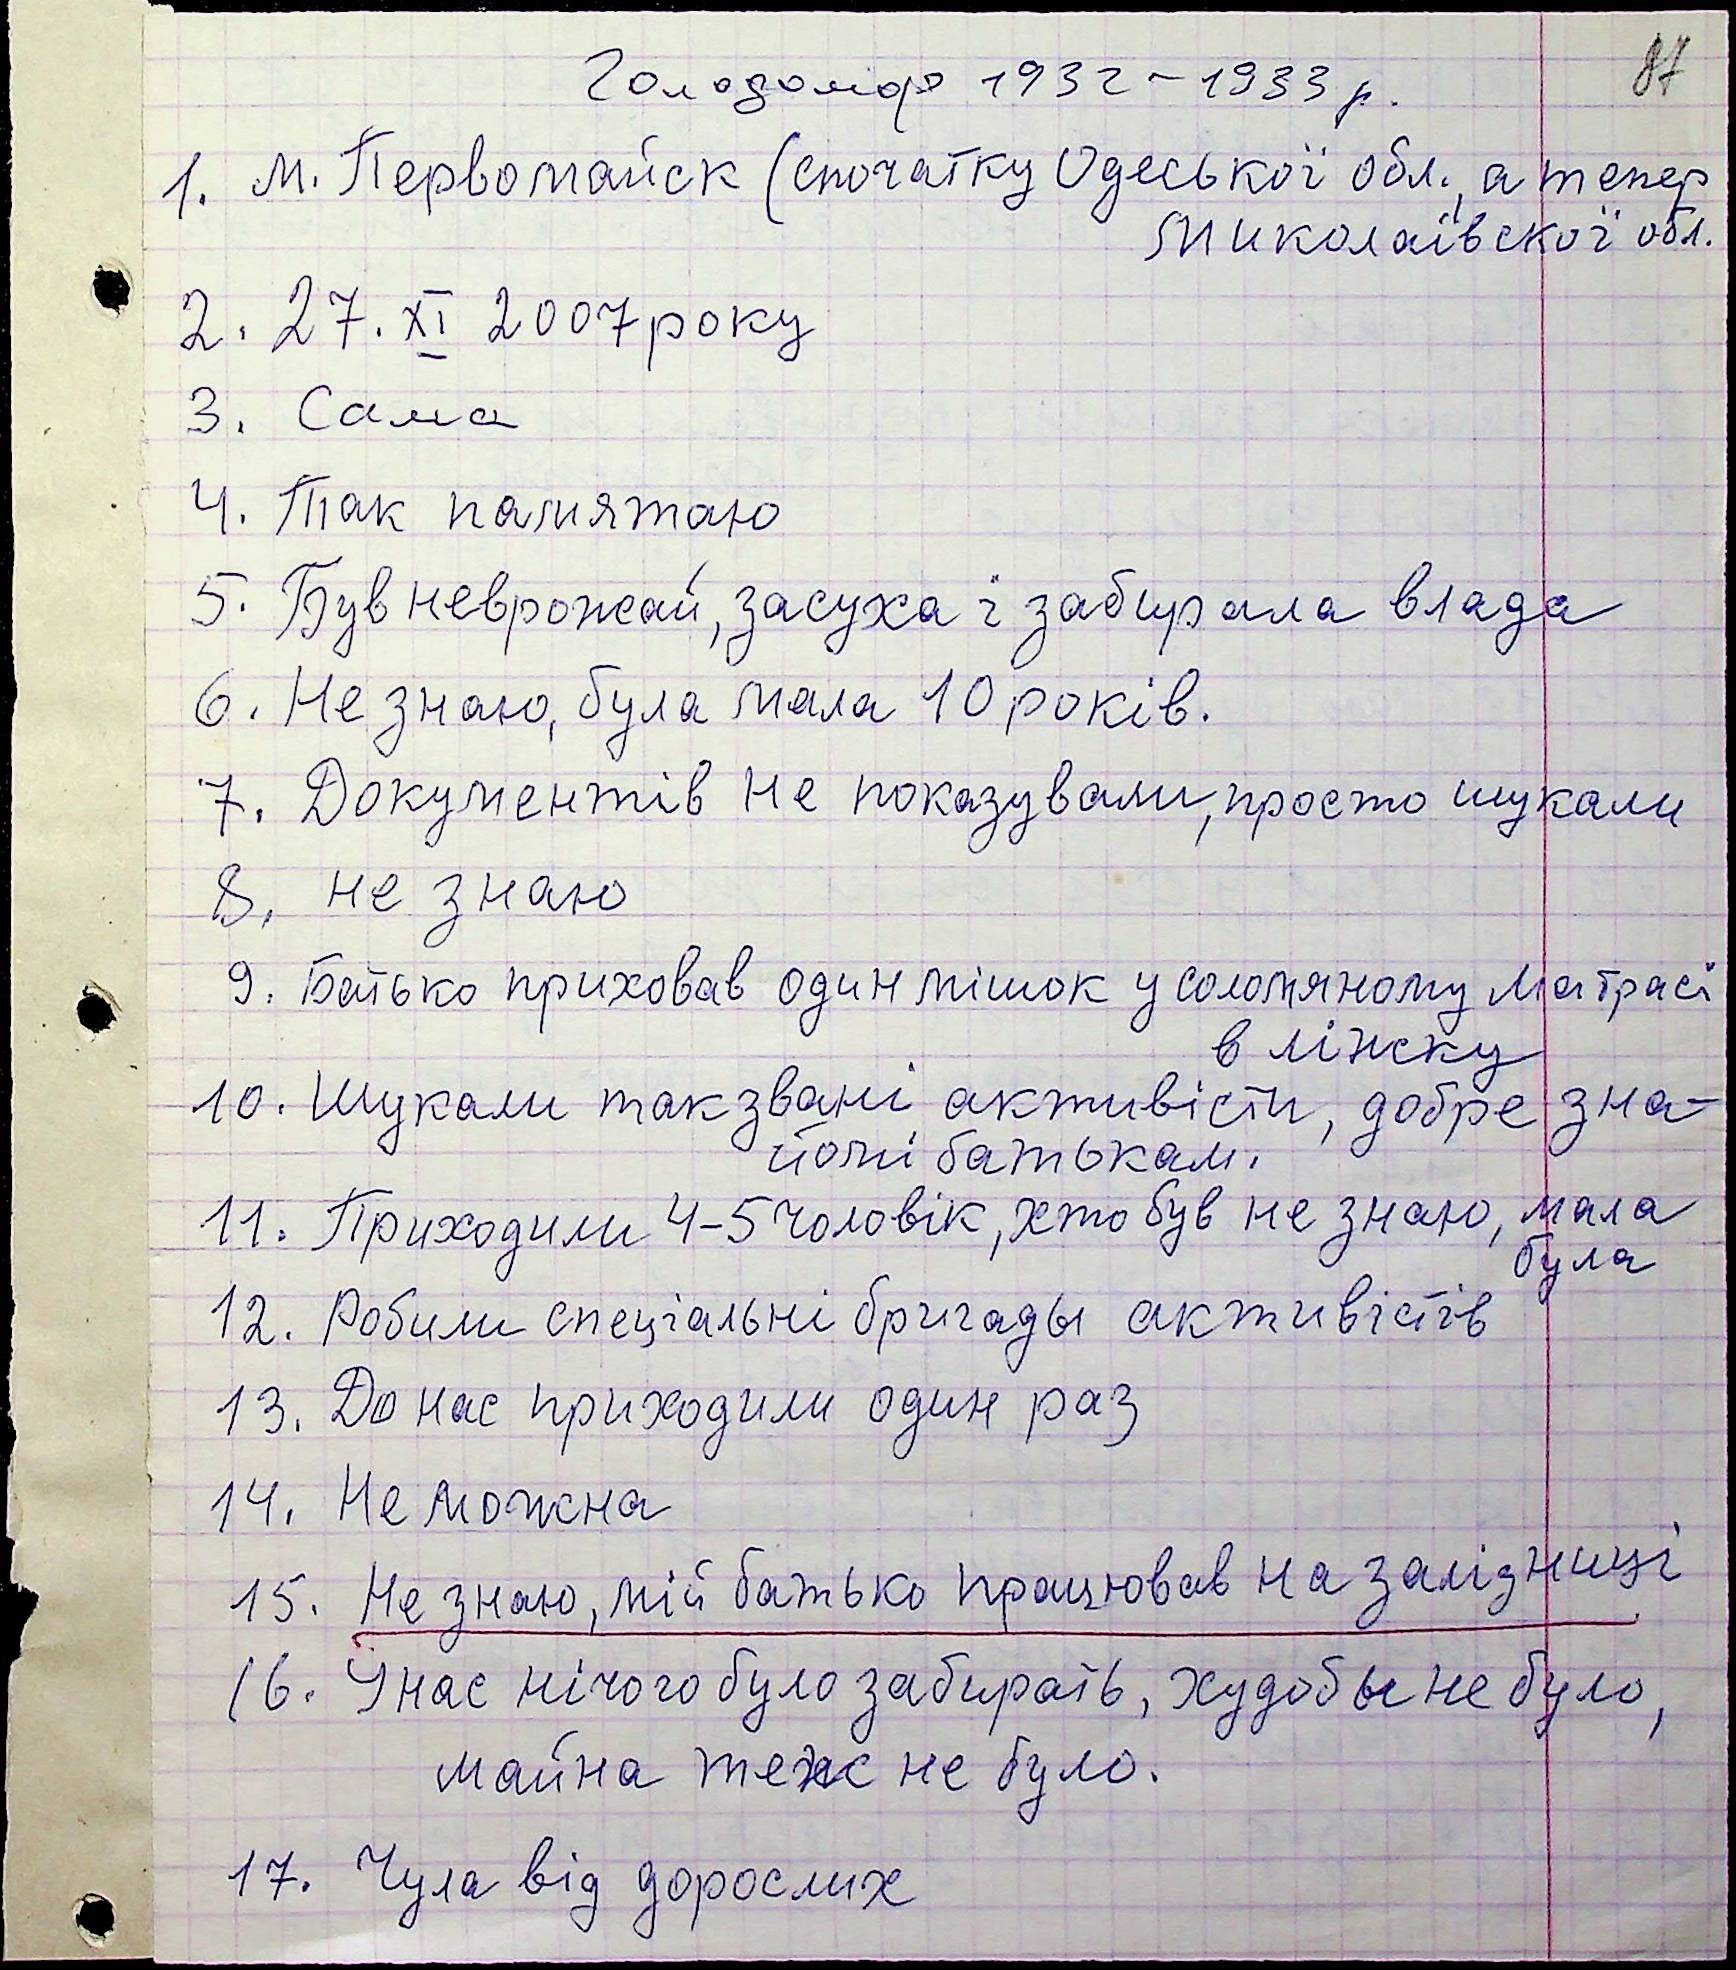 87
Голодомор 1932-1933 р.
1. м. Первомайск (спочатку Одеської обл., а тепер
Миколаївскої обл.
2. 27. XI 2007 року
3. Сама
4. Так памятаю
5. Був неврожай, засуха і забирала влада
6. Не знаю, була мала 10 років.
7. Документів не показували, просто шукали
8. не знаю
9. Батько приховав один мішок у соломяному матрасі
в ліжку
10. Шукали так звані активісти, добре зна-
йомі батькам.
11. Приходили 4-5 чоловік, хто був не знаю, мала
була
12. Робили спеціальні бригады активістів
13. До нас приходили один раз
14. Не можна
15. Не знаю, мій батько працював на залізниці
16. У нас нічого було забирать, худобы не було,
майна теж не було.
17. Чула від дорослих